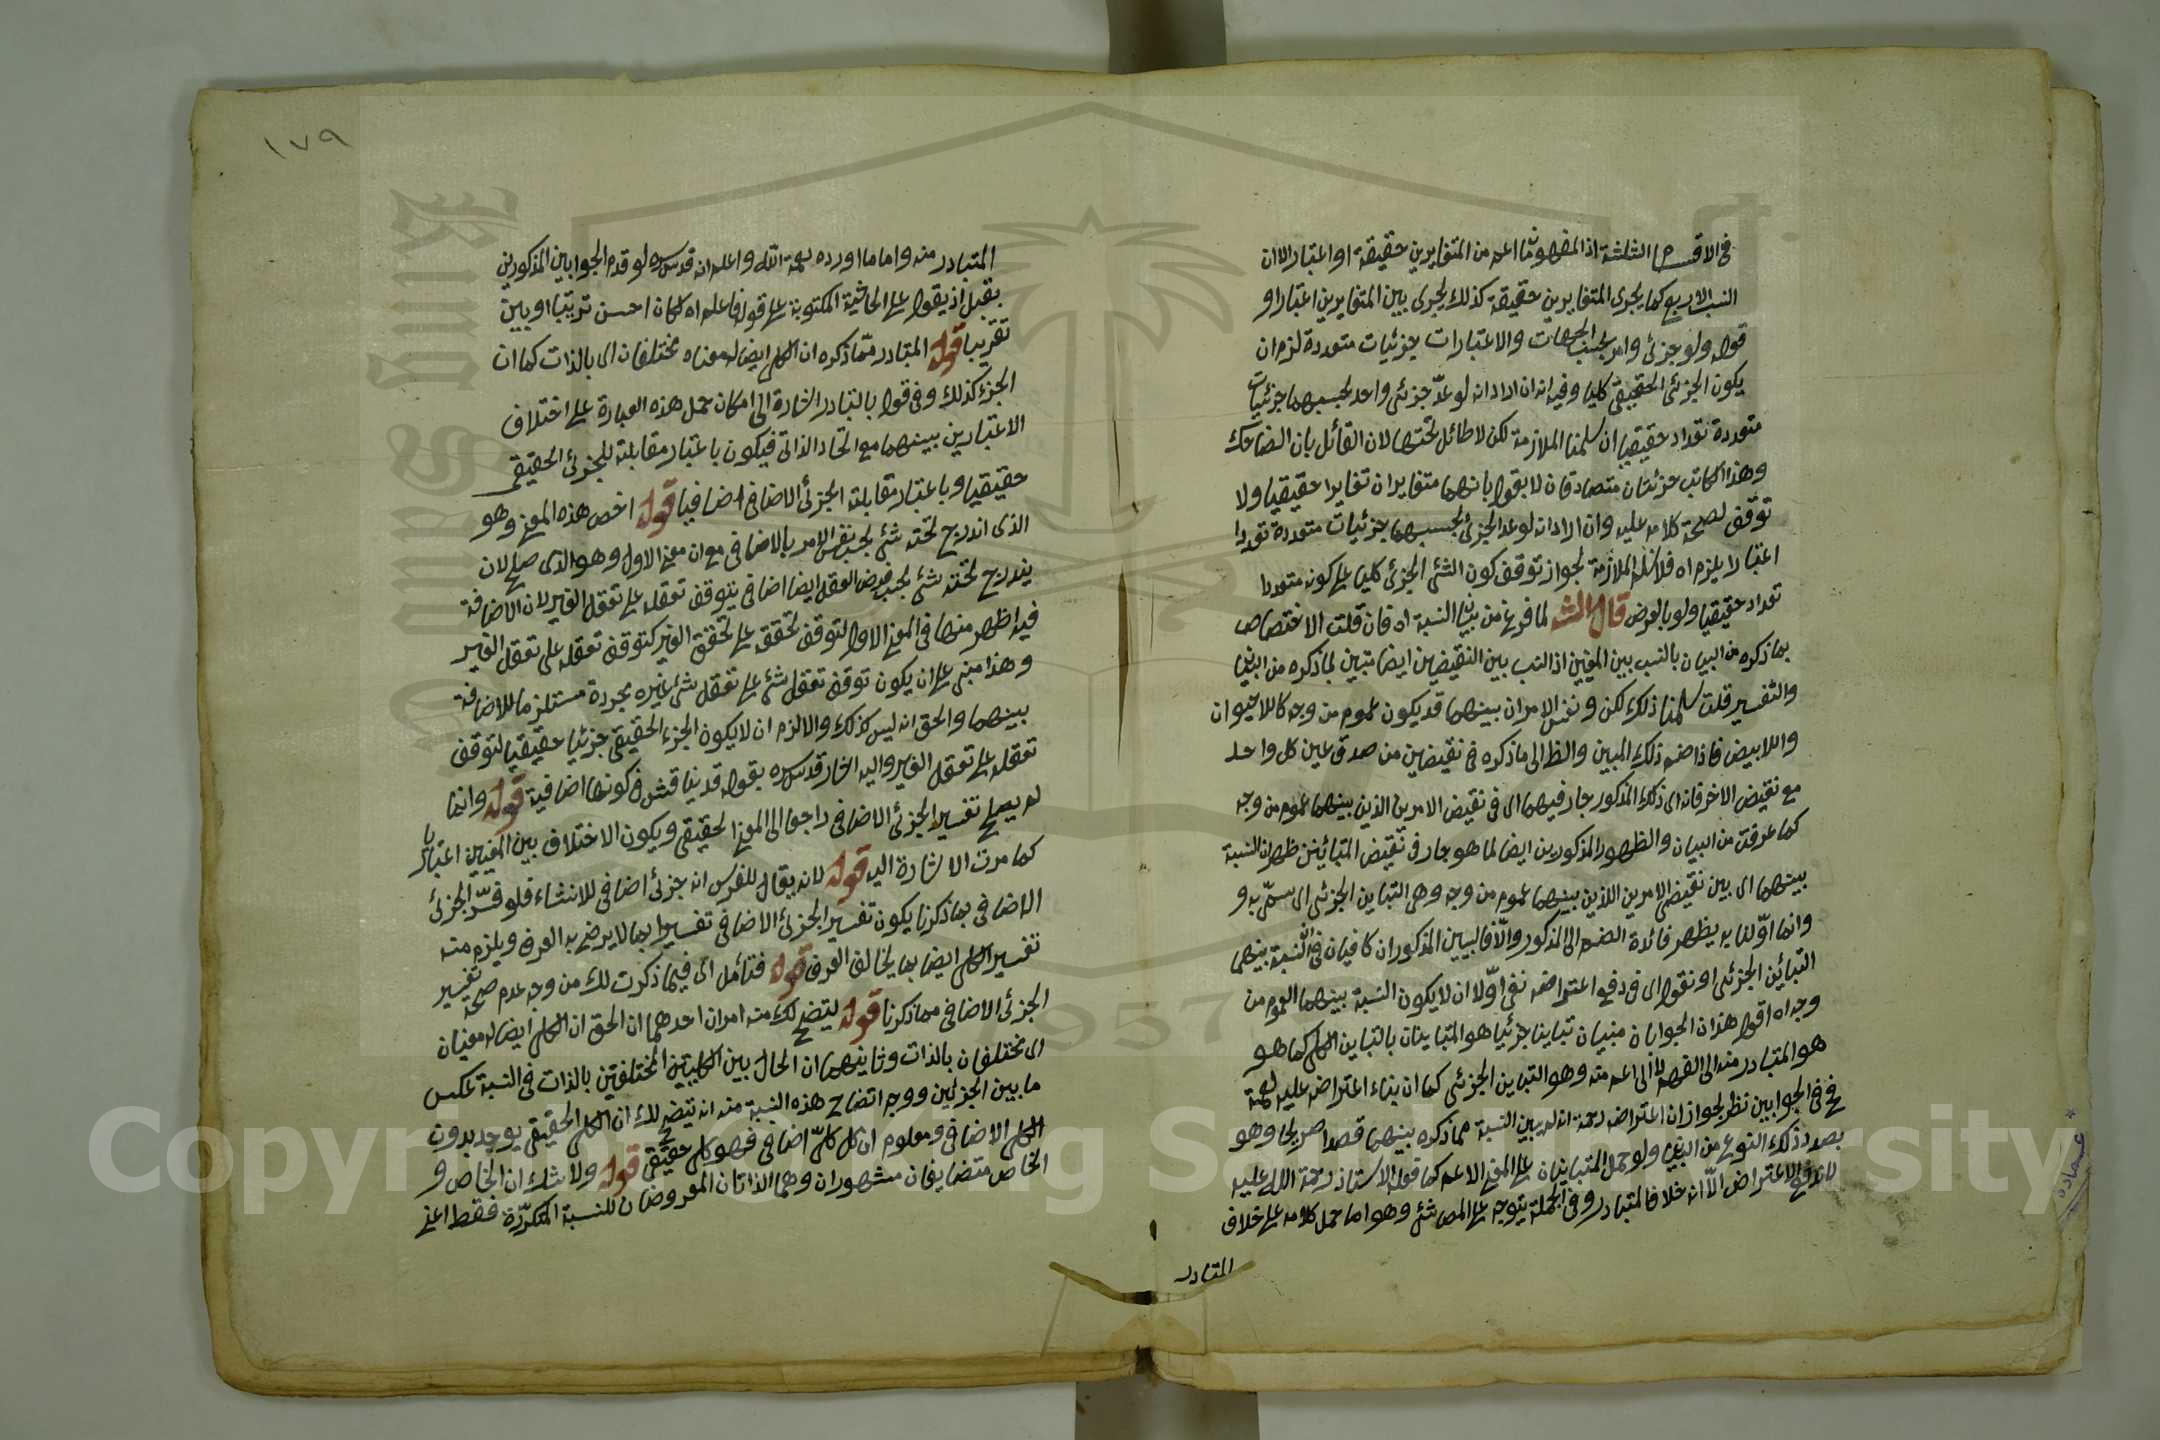 في الاقسام الثلثة اذ المفهومان اعم من المتغايرين حقيقة او اعتبارا لان
النسب الاربع كما يجرى المتغايرين حقيقة كذلك يجرى بين المتغايرين اعتبارا و
قوله ولو جزئى وامر بحسب الجهات والاعتبارات جزئيات متعددة لزم ان
يكون الجزئى الحقيقى كليا وفيه انه ان اراد انه لو عدّ جزئى واحد بحسبهما جزئيات
متعددة تعداد حقيقيا ان سلمنا الملازمة لكن لا طائل تحتها لان القائل بان الضاحك
وهذا الكاتب جزئيان متصادقان لا يقول بانهما متغايران تغايرا حقيقيا ولا
توقف لصحة كلامه عليه وان اراد انه لو عد الجزئى بحسبهما جزئيات متعددة تعددا
اعتبارا يلزم اه فلا نسلم الملازمة لجواز توقف كون الشئ الجزئى كليا على كونه متعددا
تعداد حقيقيا ولو بالفرض قال الشه لما فرغ من بيان النسبة اه فان قلت الاختصاص
بما ذكره من البيان بالنسب بين المعنيين اذ النسب بين النقيضين ايضا متبين لما ذكره من البيان
والتفسير قلت سلمنا ذلك لكن ونفس الامران بينهما قد يكون عموم من وجه كاللاحيوان
واللابيض فاذا ضم ذلك المبين والظ الى ما ذكره في نقيضين من صدق عين كل واحد
مع نقيض الاخر فانه اى ذلك المذكور جار فيهما اى في نقيض الامرين الذين بينهما عموم من وجه
كما عرفت من البيان والظهور المذكورين ايضا لما هو جار في نقيض المتبائنين ظهر ان النسبة
بينهما اى بين نقيضى الامرين اللذين بينهما عموم من وجه وهى التباين الجزئى اى سمّى به و
وانما اوّلنا به يظهر فائدة الضم الى المذكور والّا فالبيين المذكوران كافيان في ان النسبة بينهما
التبائن الجزئى او نقول اى في دفع اعتراضه نفى اوّلا ان لا يكون النسبة بينهما العموم من
وجه اه اقول هذان الجوابان مبنيان تباينا جزئيا هو المتباينان بالتباين الكلى كما هو
هو المتبادر منه الى الفهم لا الى اعم منه وهو التباين الجزئى كما ان بناء اعتراضه عليه
في الجوابين نظر لجواز ان اعتراضه رحمة انه لم يبين النسبة مما ذكره بينهما قصدا صريحا وهو
بصدد ذلك النوع من البيان ولو حمل المتباينان على المعنى الاعم كما قوله الاستاذ رحمة الله عليه
لاندفع الاعتراض الّا انه خلاف المتبادر وفي الجملة يتوجه على المص شئ وهو اما حمل كلامه على خلاف
المتبادر
١٧٩
المتبادر منه واما ما اورده الله واعلم انه قدس سره لو قدم الجوابين المذكورين
بقبل ان يقول على الحاشية المكتوبة على قوله فاعلم اه لكان احسن ترتيبا او بين
تقريبا قوله المتبادر مما ذكره ان الكلى ايضا له معناه مختلفان اى بالذات كما ان
الجزئ كذلك وفي قوله بالتبادر اشارة الى امكان حمل هذه العبارة على اختلاف
الاعتبارين بينهما مع اتحاد الذاتى فيكون باعتبار مقابلته للجزئى الحقيقى
حقيقيا وباعتبار مقابلته الجزئى الاضافى اضافيا قوله اخص هذه المعنى وهو
الذى اندرج تحته شئ بحسب نفس الامر بالاضافى مع ان معنى الاول وهو الذى صلح لان
يندرج تحته شئ بحسب فرض العقل ايضا اضافى يتوقف تعقله على تعقل الغير لان الاضافة
فيه اظهر منها في المعنى الاول لتوقف تحققه على تحقق الغير كتوقف تعقله على تعقل الغير
وهذا مبنى على ان يكون توقف تعقل شئ على تعقل شئ غيره مجردة مستلزما للاضافة
بينهما والحق انه ليس كذلك والا لزم ان لا يكون الجزء الحقيقى جزئيا حقيقيا لتوقف
تعقله على تعقل الغير واليه اشار قدس سره بقوله قد يناقش في كونها اضافية قوله وانما
لم يصلح تفسير الجزئى الاضافى راجعا الى المعنى الحقيقى ويكون الاختلاف بين المعنيين اعتباريا
كما مرت الاشارة اليه قوله لانه يقال للفرس انه جزئى اضافى للانشاء فلو فسّر الجزئى
الاضافى بما ذكرنا يكون تفسير الجزئى الاضافى تفسيرا بما لا يرضى به العرف ويلزم منه
تفسير الكلى ايضا بما يخالف العرف قوله فتأمل اى فيما ذكرت لك من وجه عدم صحة تفسير
الجزئى الاضافى مما ذكرنا قوله ليتضح لك منه امران احدهما ان الحق ان الكلى ايضا له معنيان
اى مختلفان بالذات وثانيهما ان الحال بين الكليتين المختلفتين بالذات في النسبة عكس
ما بين الجزئين ووجه اتضاح هذه النسبة منه انه يتضح لك ان الكلى الحقيقى يوجد بدون
الكلى الاضافى ومعلوم ان كل كلىّ اضافى فهو كلى حقيقى قوله ولا شك ان الخاص و
الخاص متضايفان مشهوران وهما الذاتان المعروضان للنسبة المتكررّة فقط اعنى
Copyright © King Saud University
1957